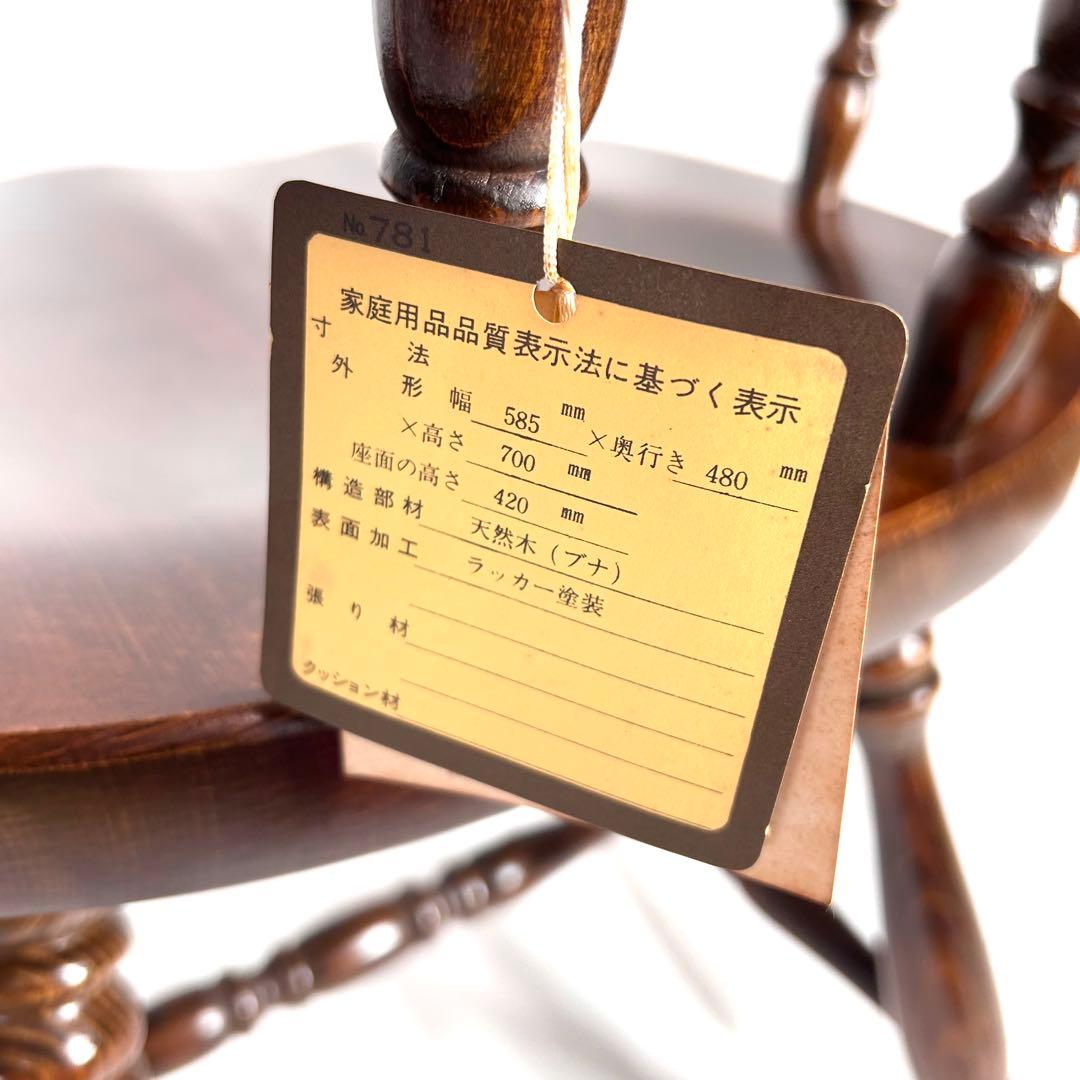 №781
家庭用品品質表示法に基づく表示
寸法
外形 幅 585 mm ×奥行き 480 mm
×高さ 700 mm
座面の高さ 420 mm
構造部材 天然木（ブナ）
表面加工 ラッカー塗装
張り材
クッション材